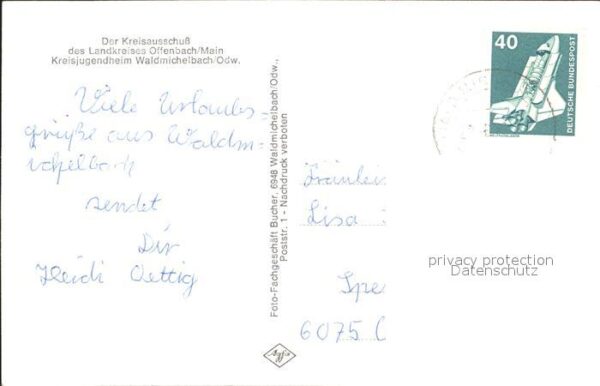 Der Kreisausschuß
des Landkreises Offenbach/Main
Kreisjugendheim Waldmichelbach/Odw.
Viele Urlaubs-
grüße aus Waldm-
ichelbach
sendet
Dir
Heidi Oettig
Foto-Fachgeschäft Bucher, 6948 Waldmichelbach/Odw.,
Poststr. 1 - Nachdruck verboten
Agfa
40
DEUTSCHE BUNDESPOST
Fräulein
Lisa
privacy protection
Datenschutz
Spe
6075